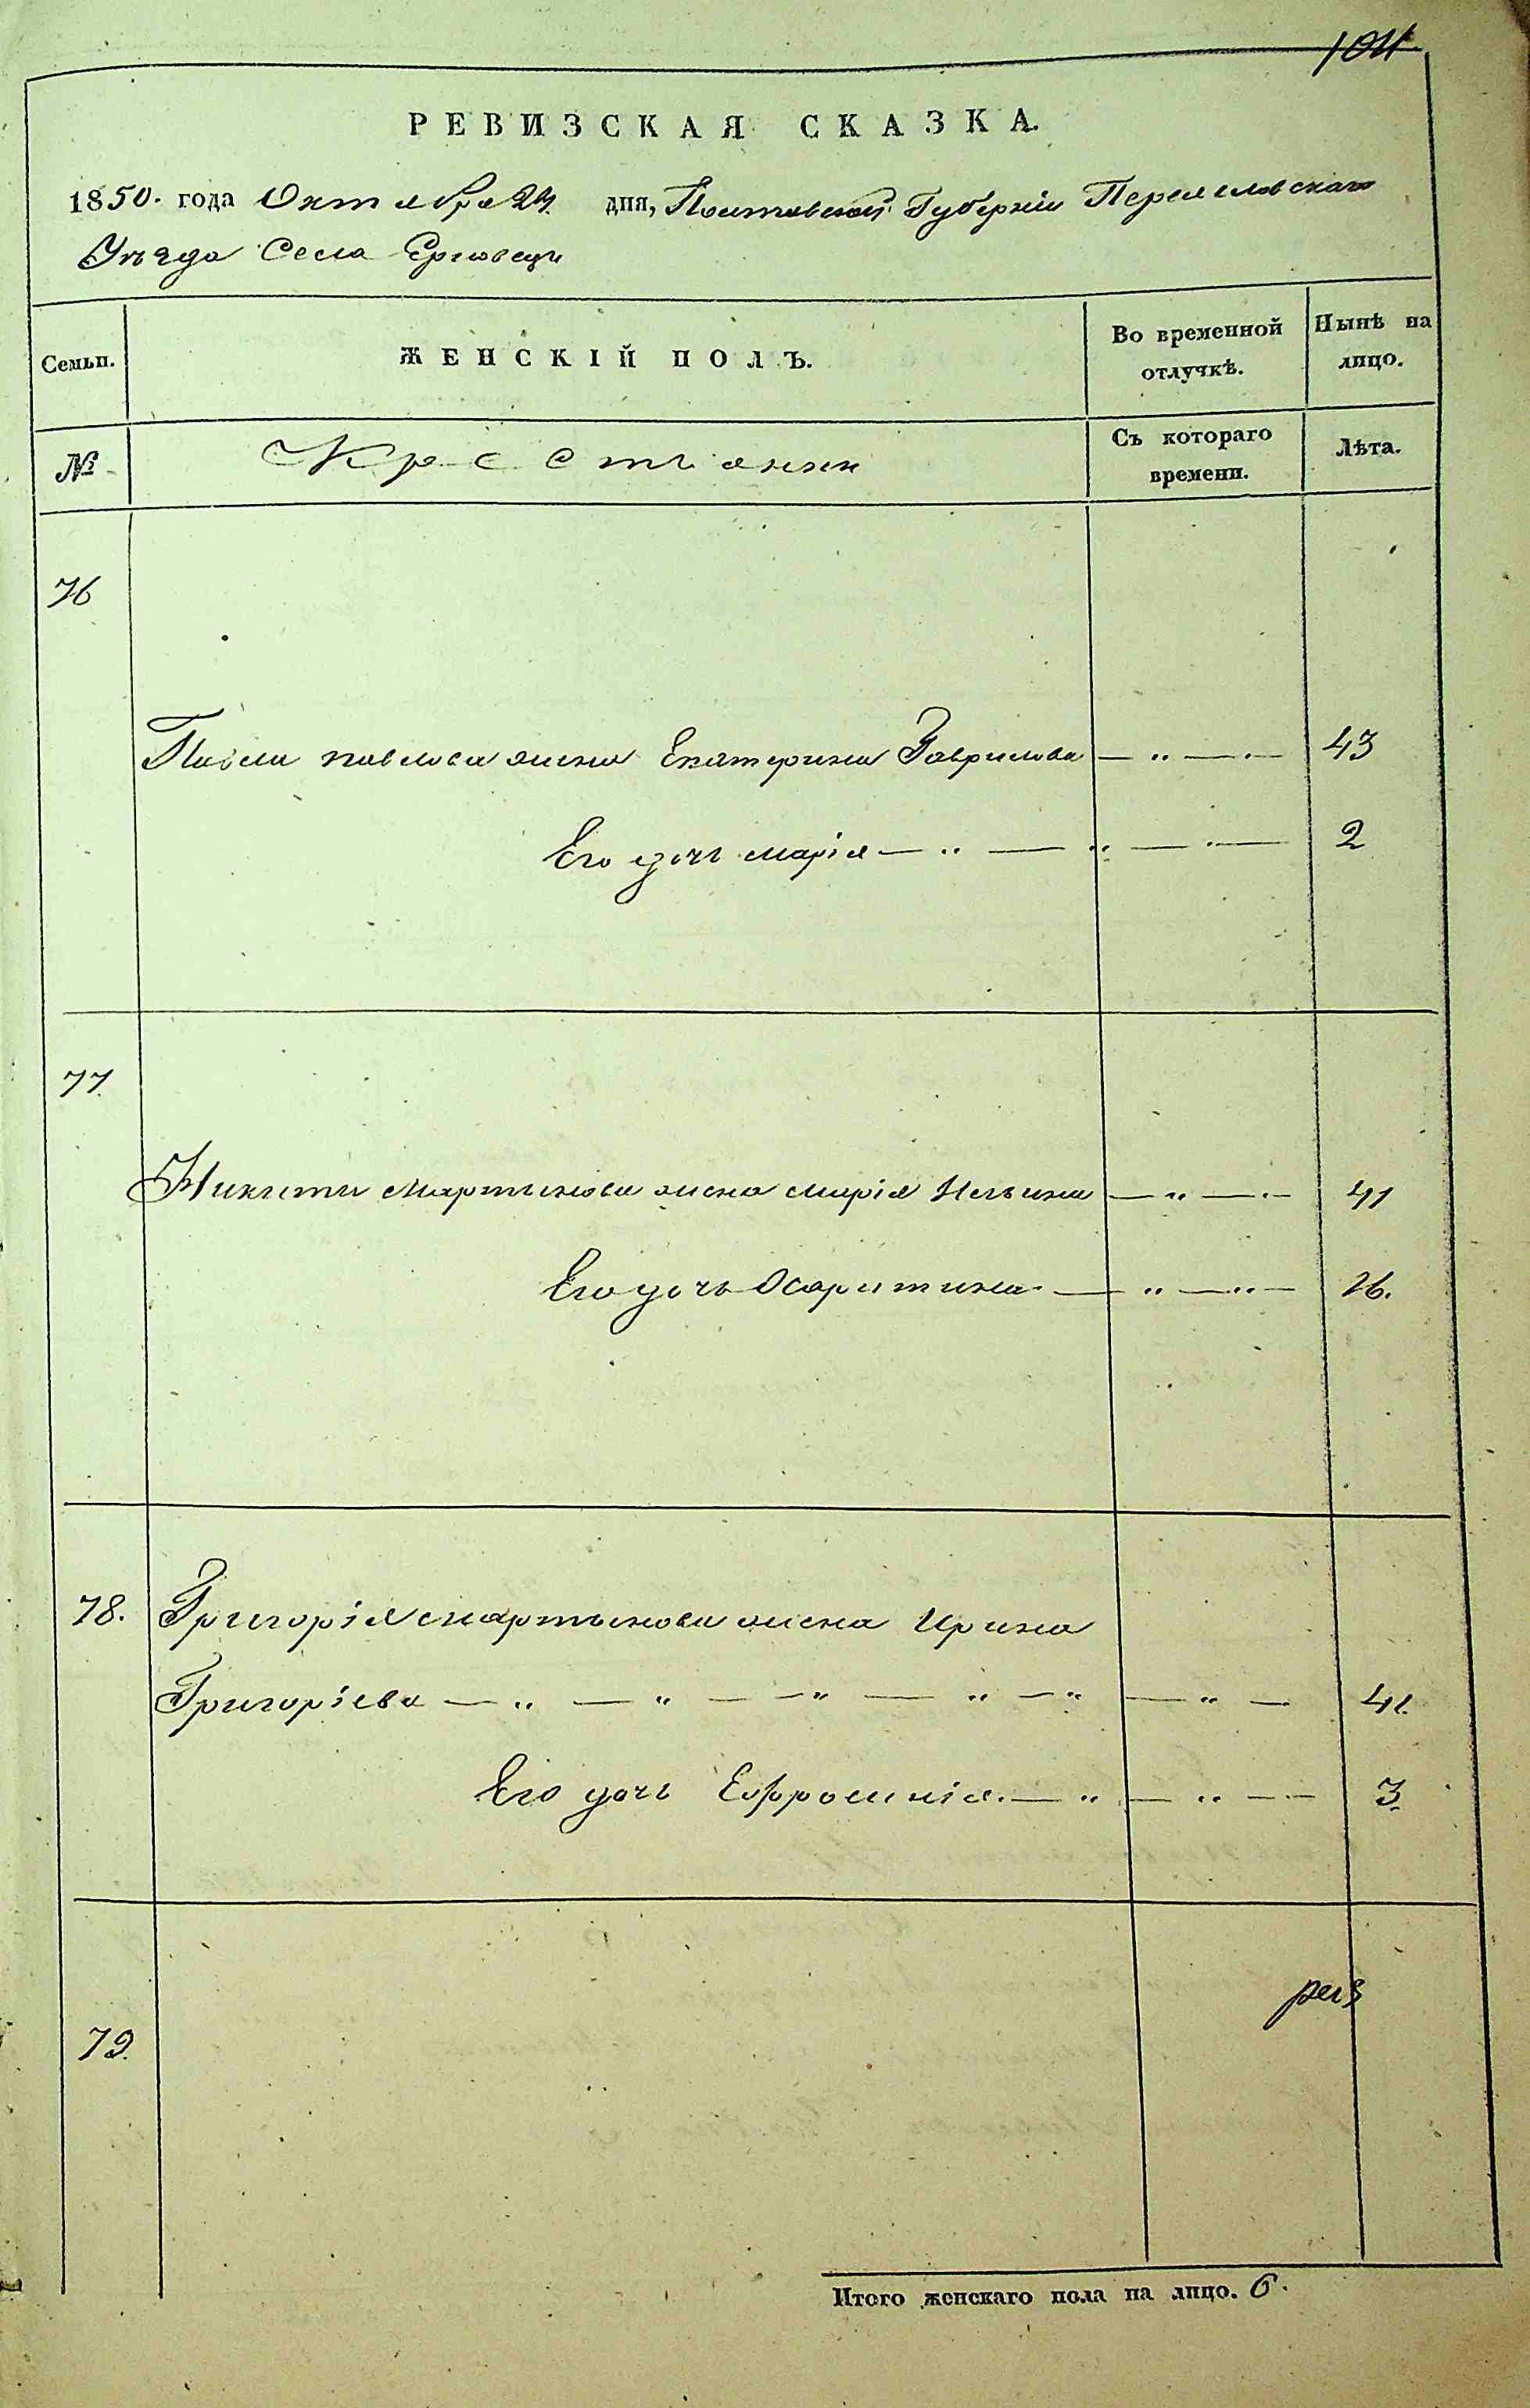 104
РЕВИЗСКАЯ СКАЗКА.
1850. года Октября 24. дня, Полтавской Губерніи Переяславскаго
Уѣзда Села Ерковецъ
Семьи. ЖЕНСКІЙ ПОЛЪ. Во временной отлучкѣ. Нынѣ на лицо.
№ Крестьянки Съ котораго времени. Лѣта.
76
Павла Павлова жена Екатерина Гаврилова — „ — „ — 43
Его дочь Марія — „ — „ — „ — 2
77.
Никиты Мартынова жена Марія Ильина — „ — „ — 41
Его дочь Харитина — „ — „ — 16.
78. Григорія Мартынова жена Ирина
Григоріева — „ — „ — „ — „ — „ — „ — 41.
Его дочь Ефросинія. — „ — „ — 3.
79.
Итого женскаго пола на лицо. 6.